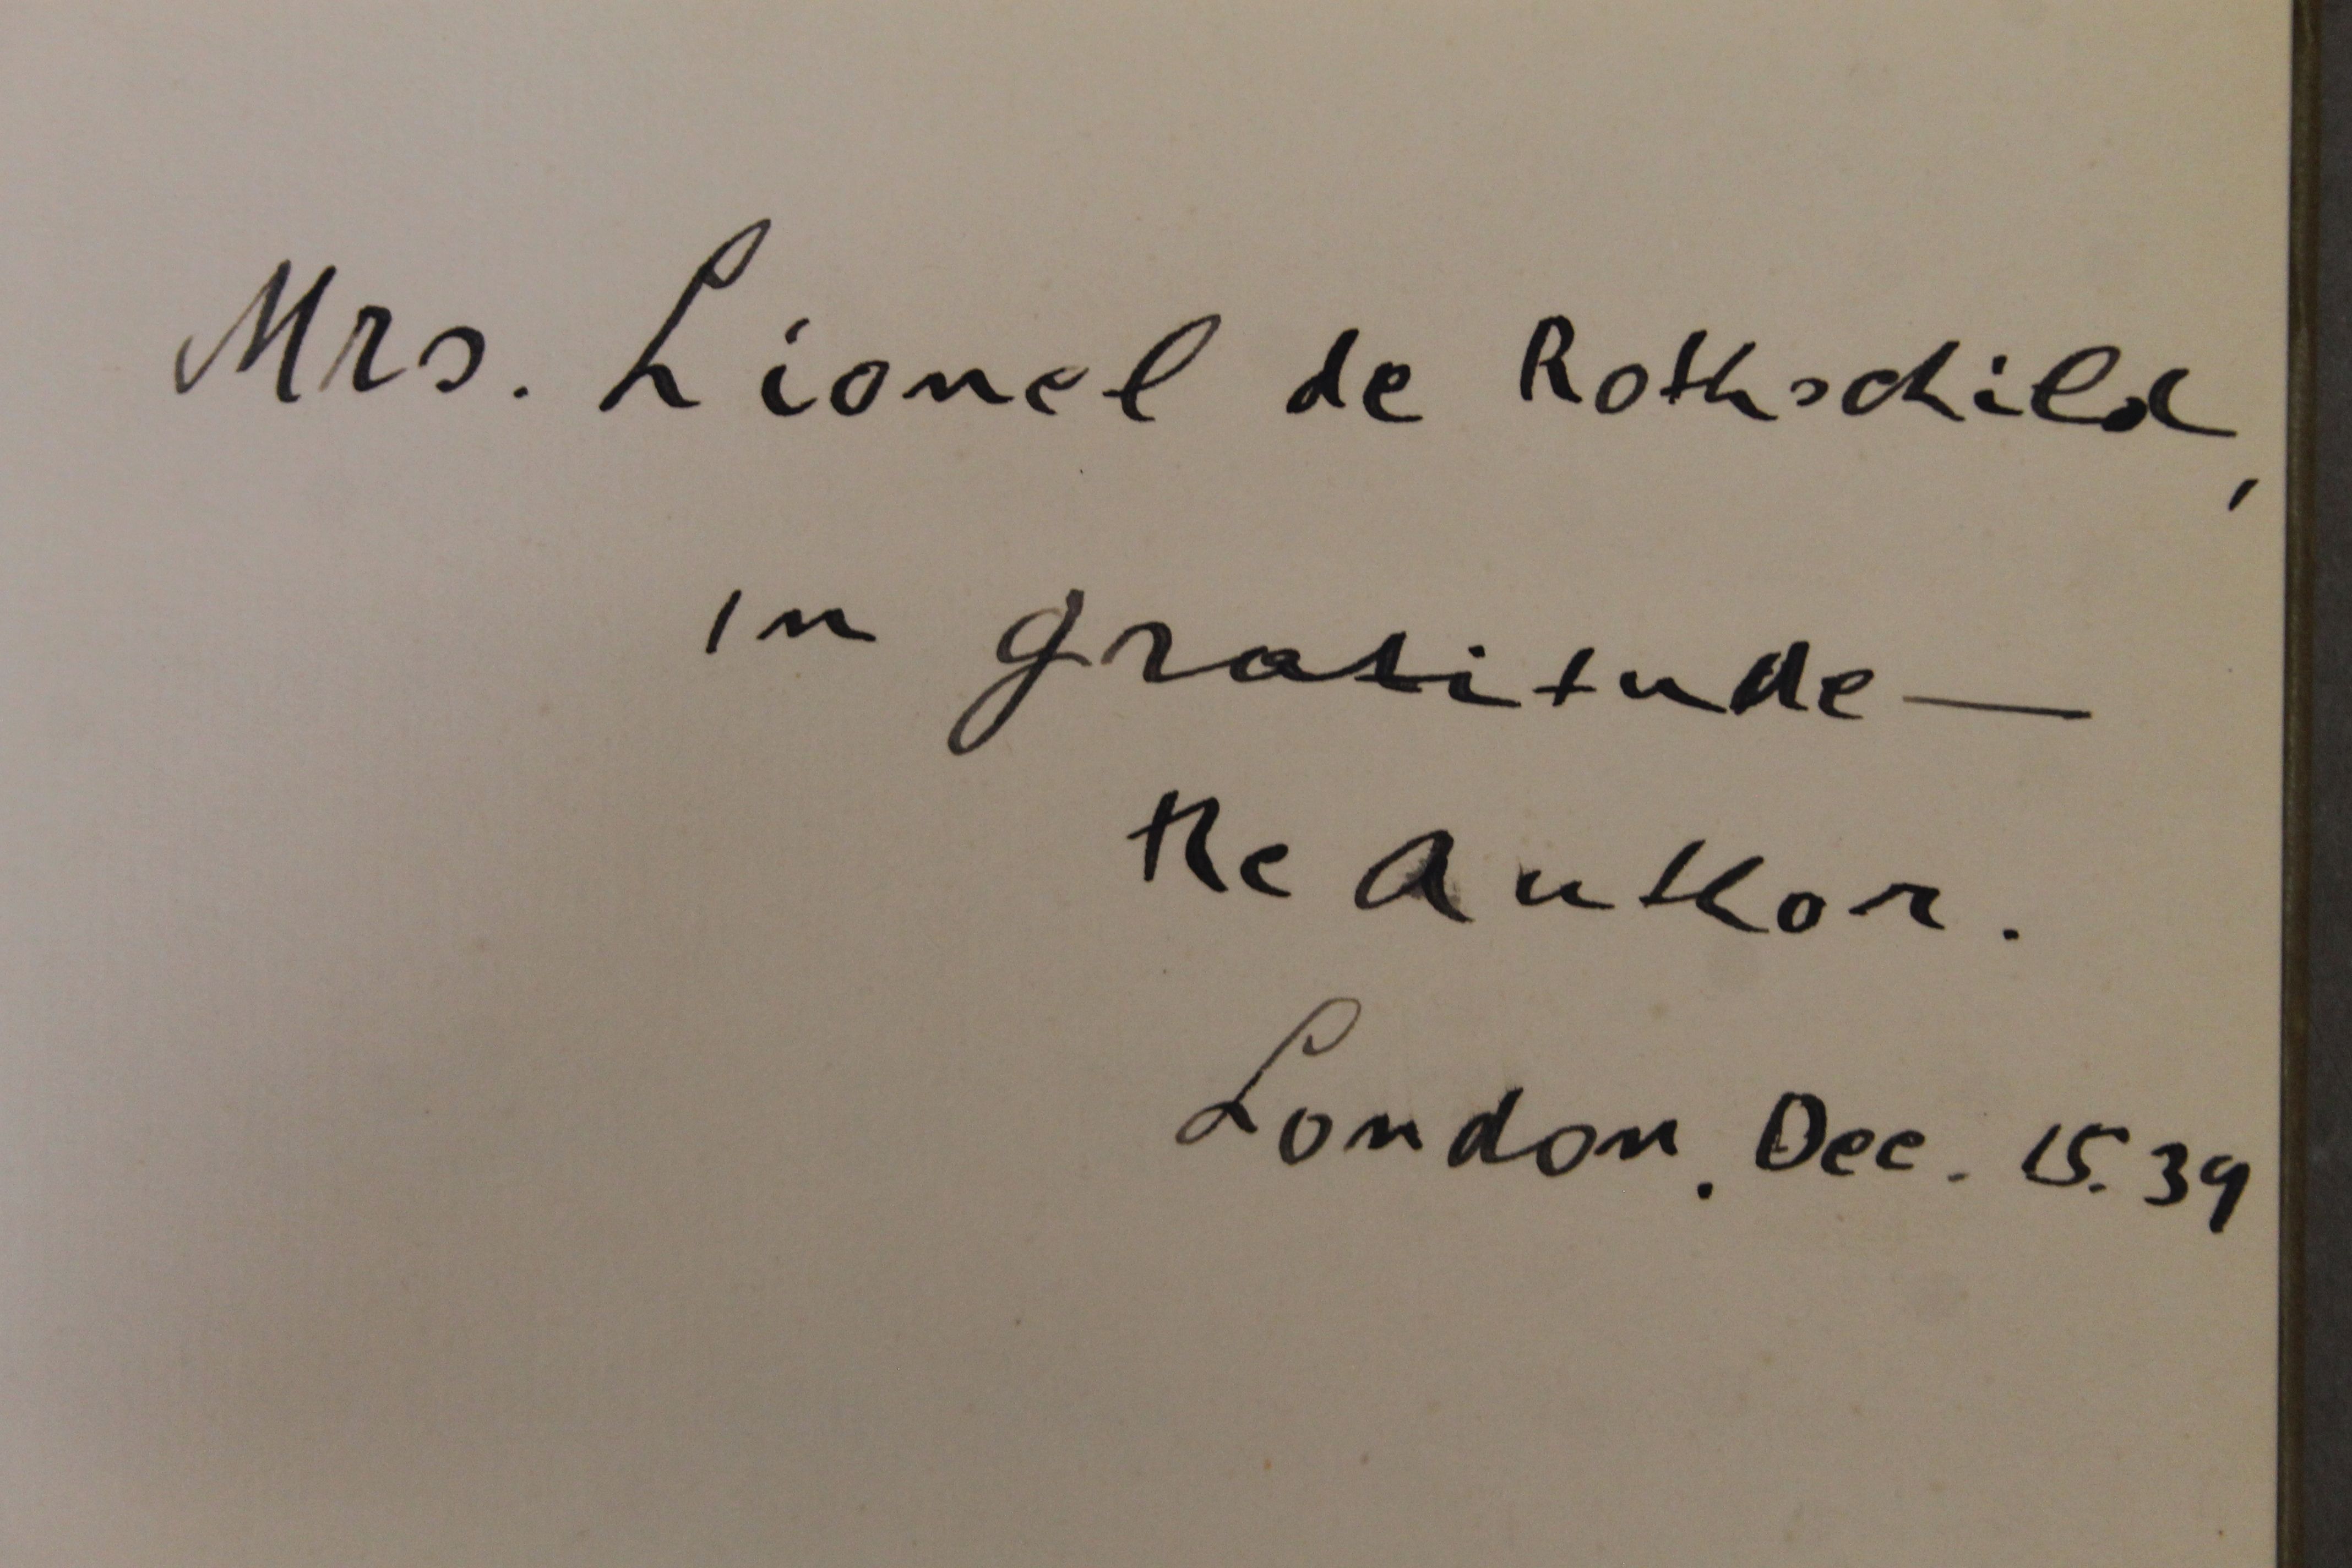 Mrs. Lionel de Rothschild,
in gratitude —
the Author.
London. Dec. 15. 39